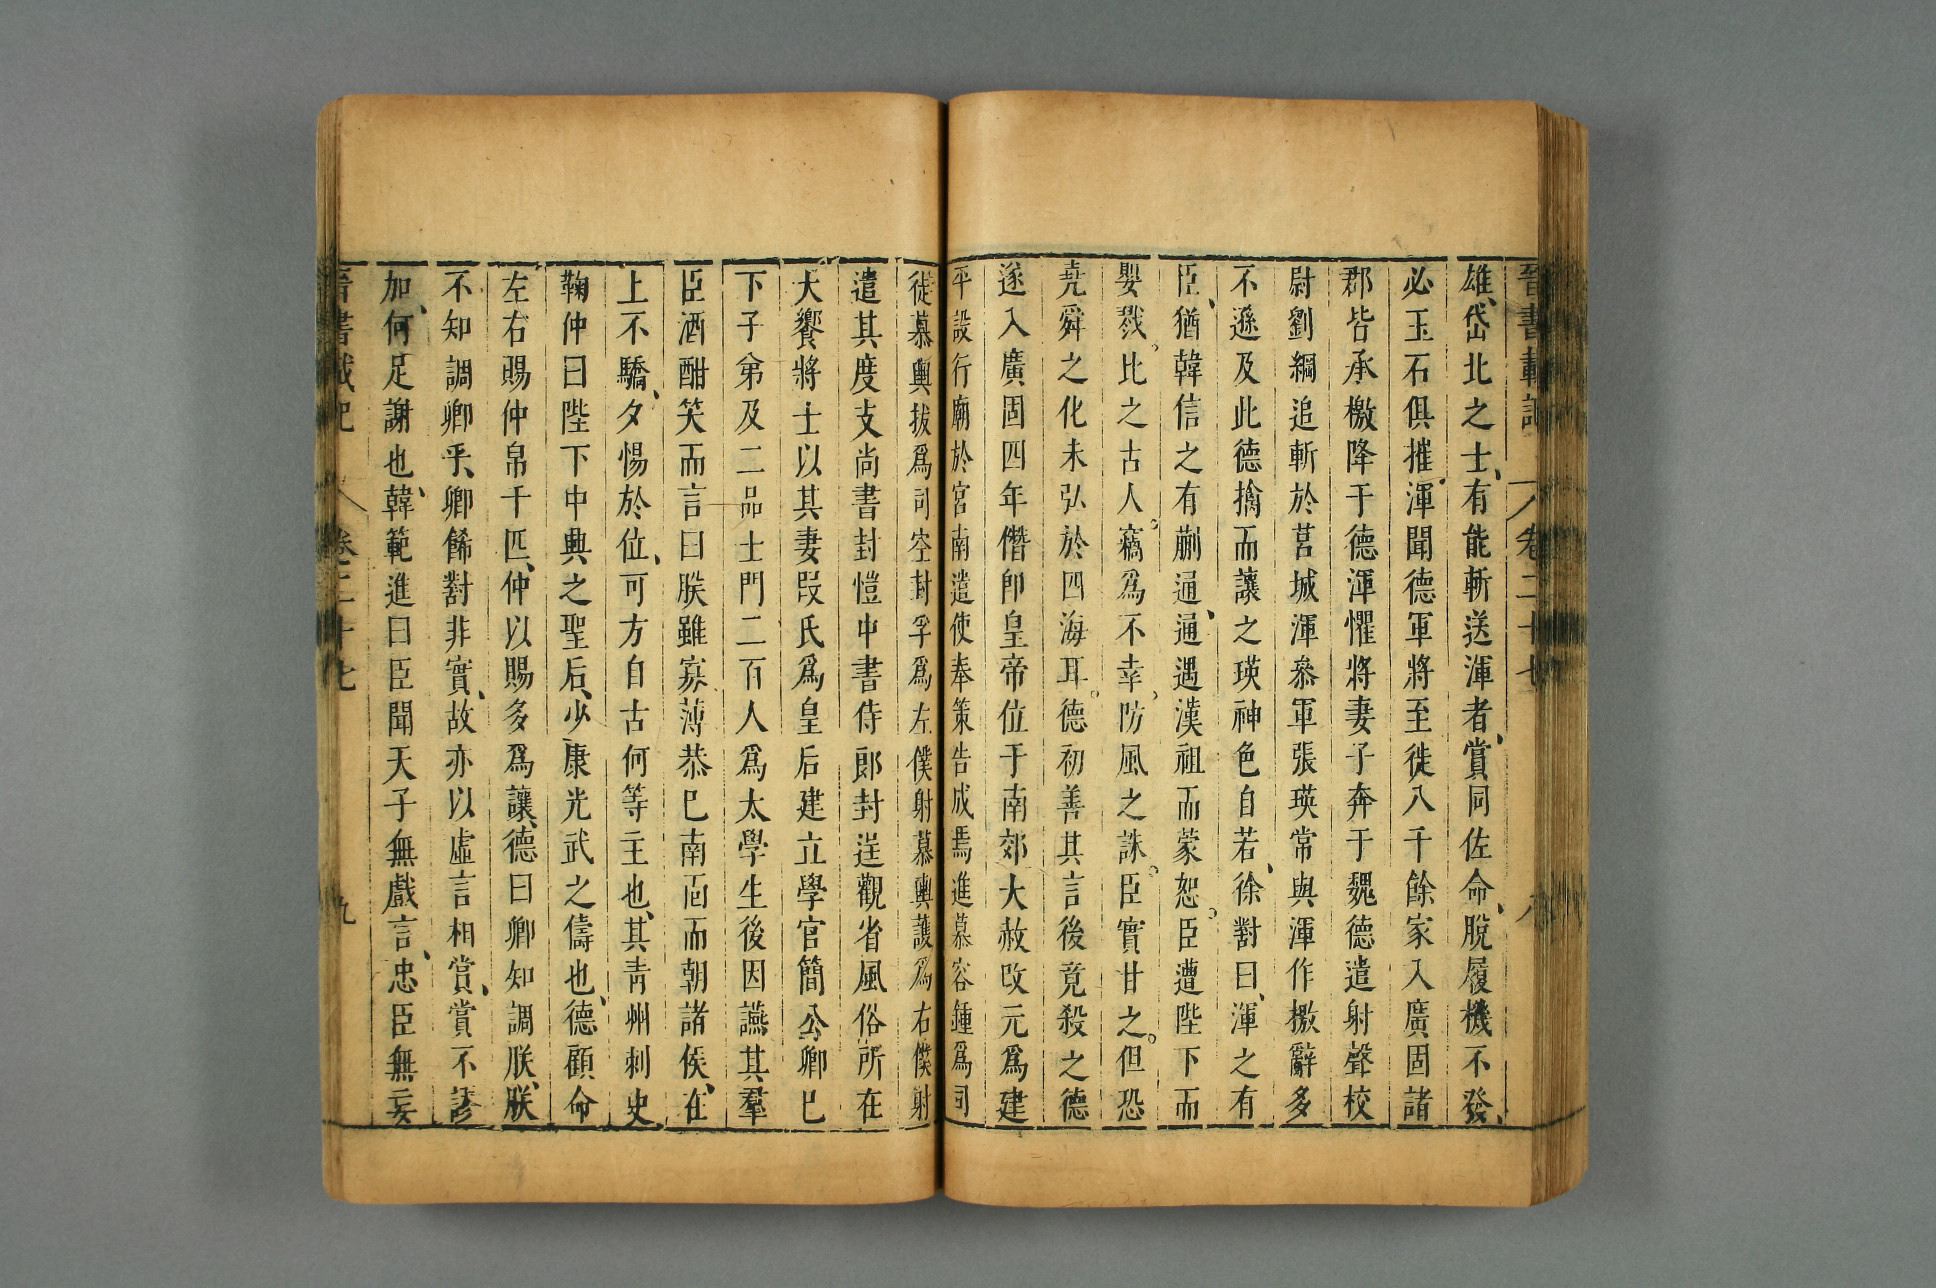 晉書載記 卷二十七 八
雄、岱北之士、有能斬送渾者、賞同佐命、脫履機不發、
必玉石俱摧、渾聞德軍將至徙八千餘家入廣固諸
郡皆承檄降于德渾懼將妻子奔于魏德遣射聲校
尉劉綱追斬於莒城渾參軍張瑛常與渾作檄辭多
不遜及此德擒而讓之瑛神色自若、徐對曰、渾之有
臣、猶韓信之有蒯通、通遇漢祖而蒙恕。臣遭陛下而
嬰戮。比之古人。竊爲不幸。防風之誅。臣實甘之。但恐
堯舜之化未弘於四海耳。德初善其言後竟殺之德
遂入廣固四年僭卽皇帝位于南郊大赦改元爲建
平設行廟於宮南遣使奉策告成焉進慕容鍾爲司
徒慕輿拔爲司空封孚爲左僕射慕輿護爲右僕射
遣其度支尚書封愷中書侍郎封逞觀省風俗所在
大饗將士以其妻段氏爲皇后建立學官簡公卿已
下子弟及二品士門二百人爲太學生後因讌其羣
臣酒酣笑而言曰朕雖寡薄恭己南面而朝諸侯、在
上不驕、夕惕於位、可方自古何等主也、其靑州刺史
鞠仲曰陛下中興之聖后、少康光武之儔也、德顧命
左右賜仲帛千匹、仲以賜多爲讓、德曰卿知調朕、朕
不知調卿乎、卿餙對非實、故亦以虛言相賞、賞不謬
加、何足謝也、韓範進曰臣聞天子無戲言、忠臣無妄
晉書載記 卷二十七 九